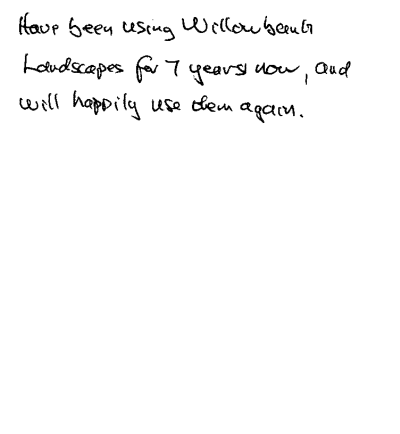 Have been using Willowbank
Landscapes for 7 years now, and
will happily use them again.